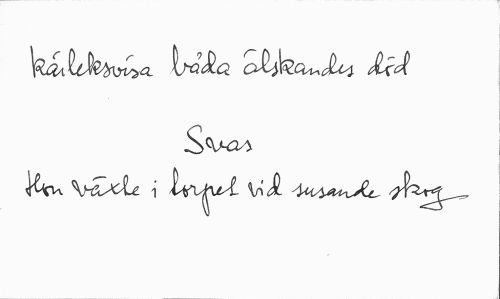 kärleksvisa båda älskandes död
Svas
Hon växte i torpet vid susande skog